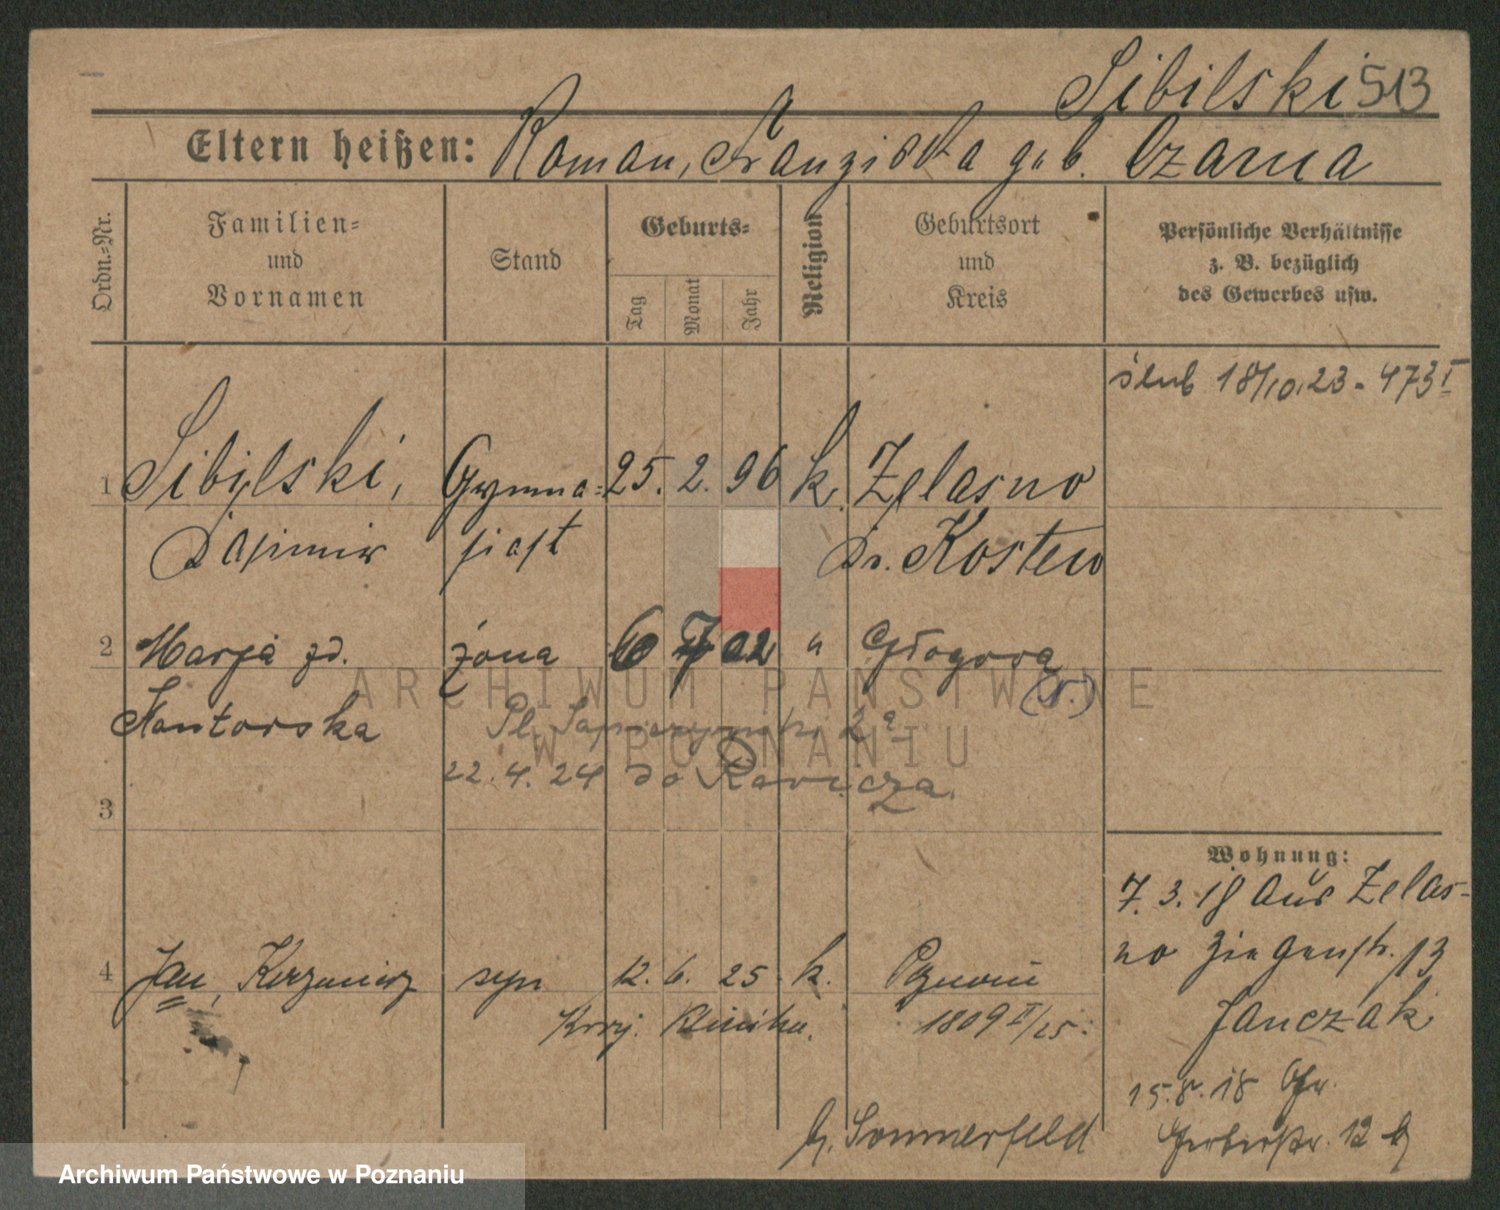 Sibilski 513
Eltern heißen: Roman, Franziska geb. Czarna
Ordn.-Nr.
Familien-
und
Vornamen
Stand
Geburts-
Tag
Monat
Jahr
Religion
Geburtsort
und
Kreis
Persönliche Verhältnisse
z. B. bezüglich
des Gewerbes usw.
ślub 18/10.23 - 473 I
1 Sibilski, Gymna- 25. 2. 96 k. Zelasno
Casimir siast Kr. Kosten
2 Marja zd. żona 6 7 02 " Głogova
Kantorska
(r.)
ARCHIWUM PAŃSTWOWE
W POZNANIU
Pl. Sapieżyński 2a
22.4.24 do Rawicza.
3
4 Jan, syn 12. 6. 25. k. Poznań
klinika. 1809 II/25.
Wohnung:
7. 3. 18 aus Zelas-
no Ziegenstr. 13
Janczak
15.8.18
Gerberstr. 12
b. Sommerfeld
Archiwum Państwowe w Poznaniu